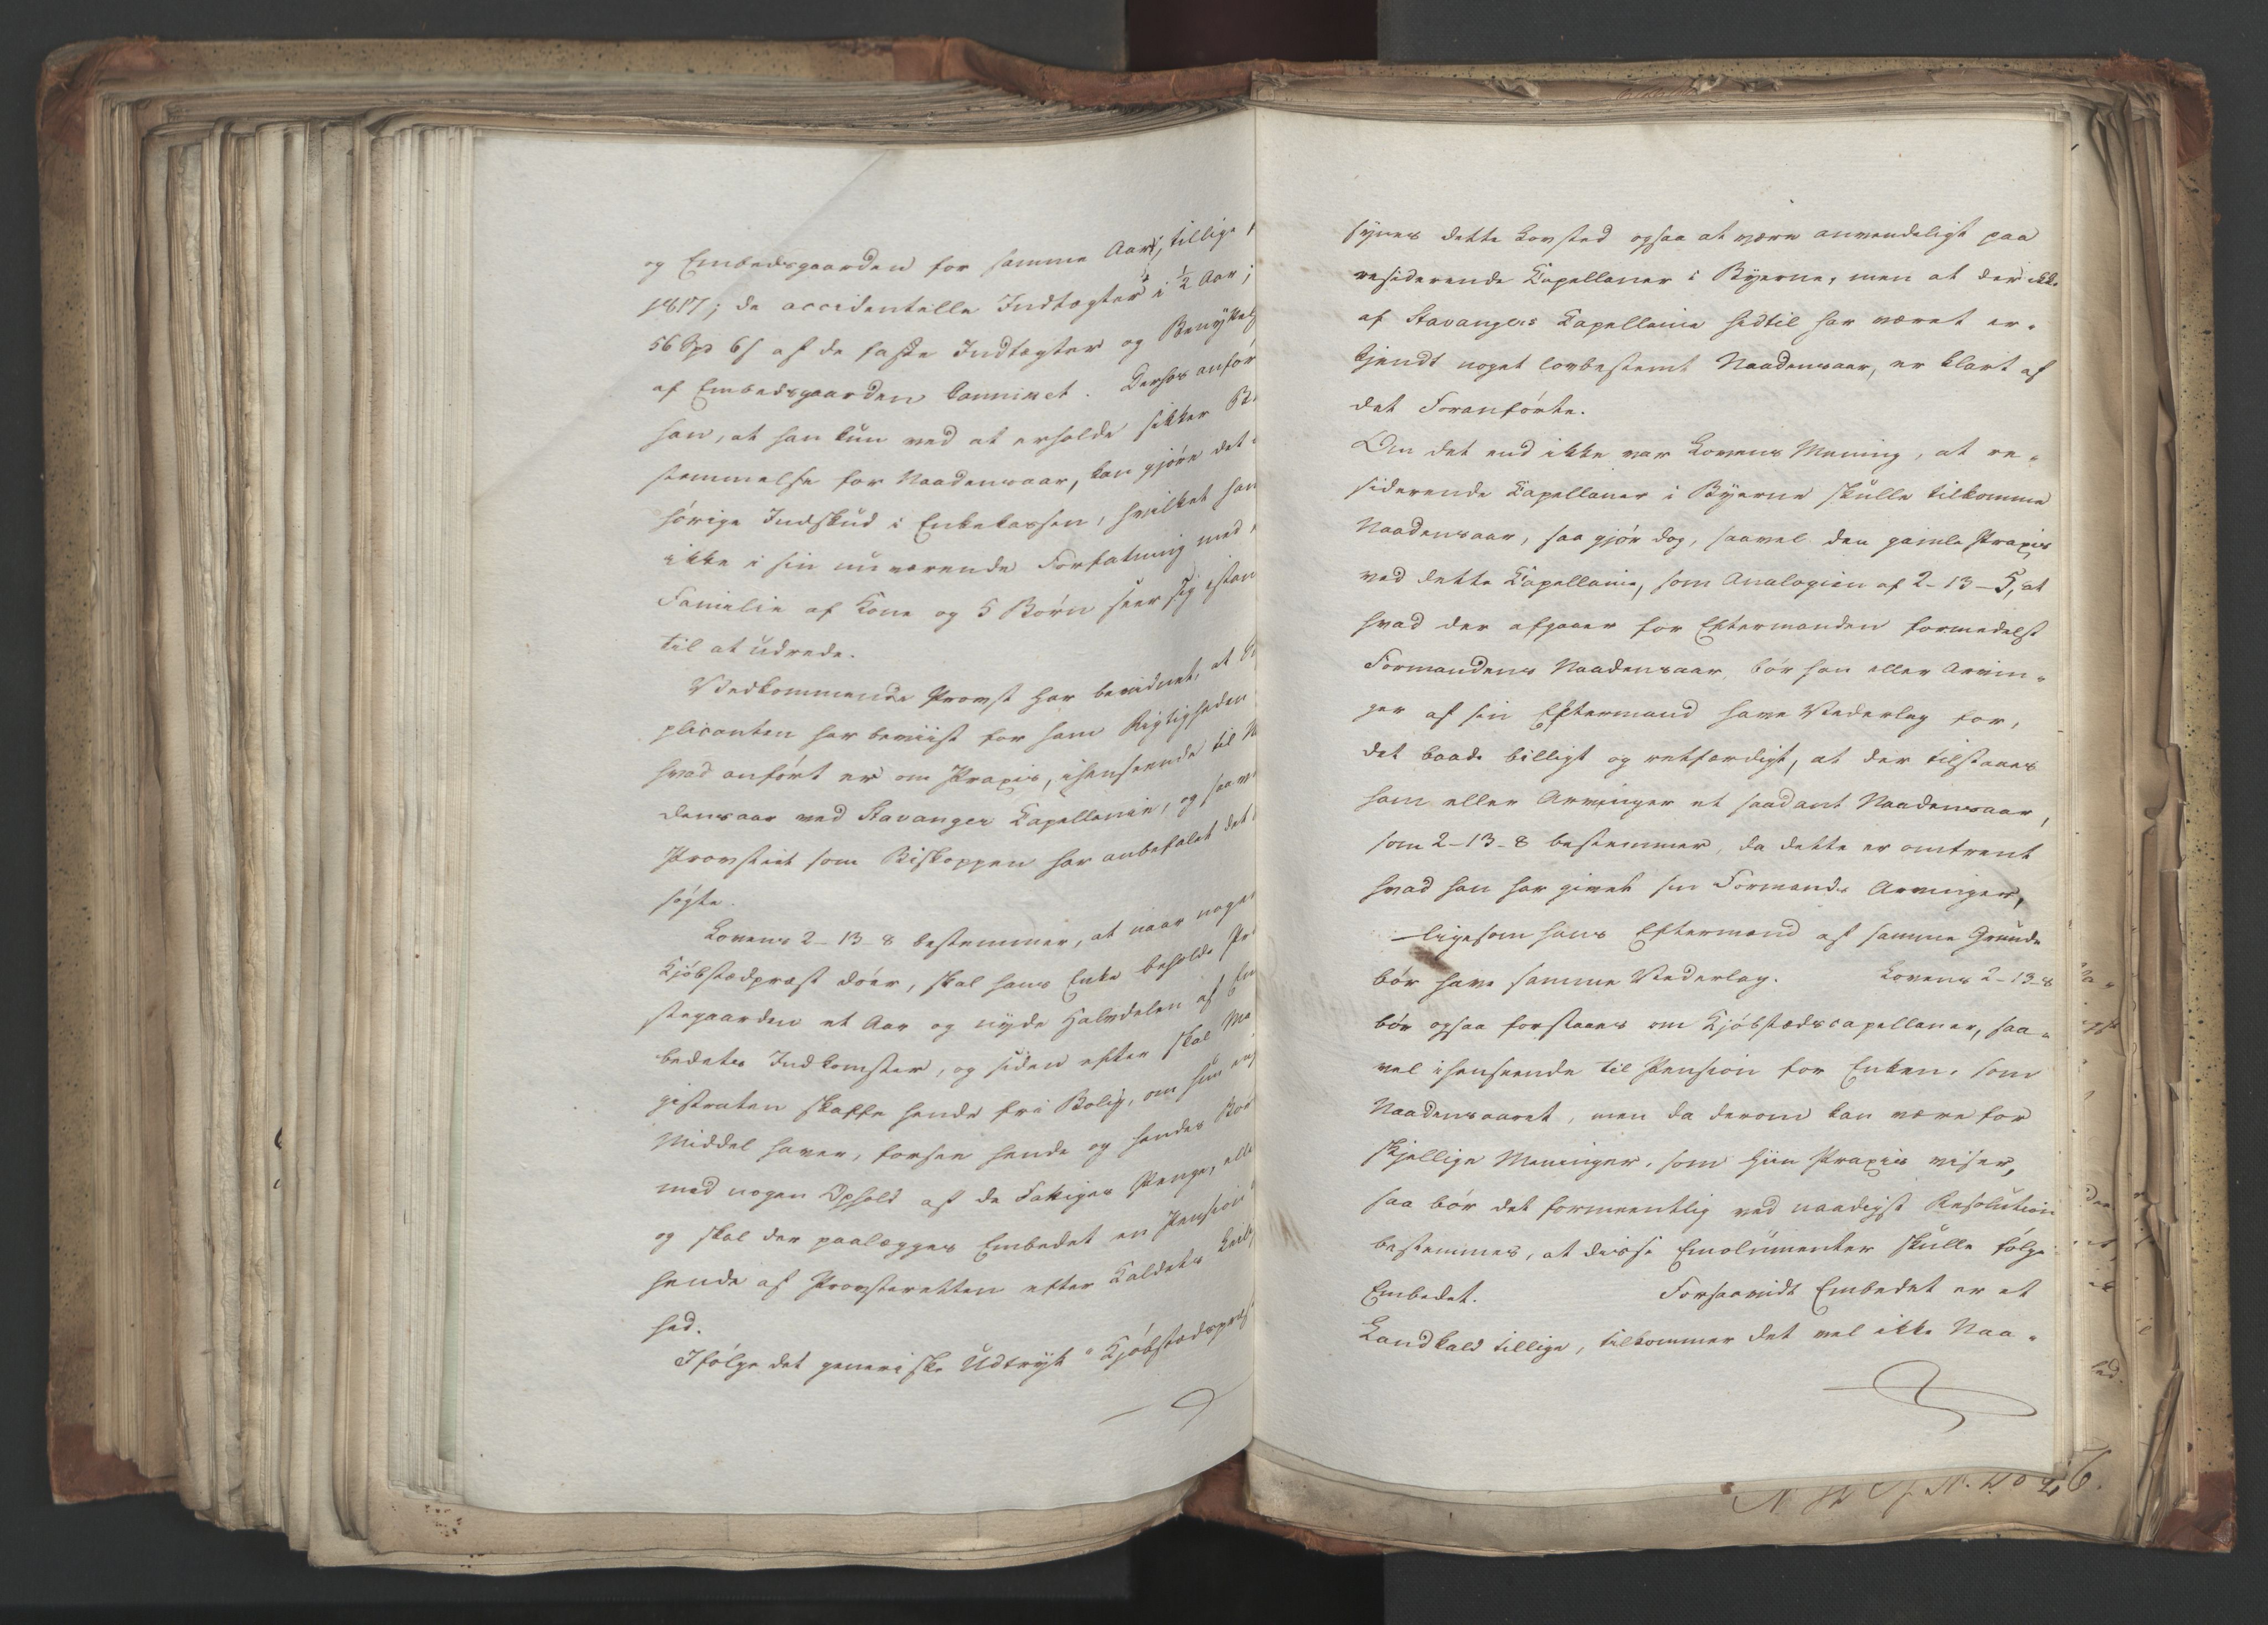 og Embedsgaarden for samme Aar, tillige
1817; de accidentelle Indtægter i ½ Aar;
56 Spd 6 s af de faste Indtægter og Benyttels
af Embedsgaarden berammet. Derhos anfør
han, at han kun ved at erholde sikker Be
stemmelse for Naadensaar, kan gjöre det
hörige Indskud i Enkekassen, hvilket han
ikke i sin nuværende Forfatning med
Familie af Kone og 5 Börn seer sig istan
til at udrede.
Vedkommende Provst har bevidnet, at Su
plicanten har beviist for ham Rigtigheden
hvad anfört er om Praxis, ihenseende til N
densaar ved Stavanger Kapellanie, og saave
Provstiet som Biskoppen har anbefalet det
søgte.
Lovens 2-13-8 bestemmer, at naar noge
Kjöbstædpræst döer, skal hans Enke beholde Pr
stegaarden et Aar og nyde Halvdelen af Em
bedets Indkomster, og siden efter skal Ma
gistraten skaffe hende frie Bolig, om hun ey
Middel haver, forsee hende og hendes Bör
med nogen Ophold af de Fattiges Penge, elle
og skal der paalægges Embedet en Pension
hende af Provsteretten efter Kaldets Leilig
hed.
Ifölge det generiske Udtryk "Kjöbstædspræst
synes dette Lovsted ogsaa at være anvendeligt paa
residerende Kapellaner i Byerne, men at der ikke
af Stavangers Kapellanie hidtil har været er-
kjendt noget lovbestemt Naadensaar, er klart af
det Foranförte.
Om det end ikke var Lovens Mening, at re-
siderende Kapellaner i Byerne skulle tilkomme
Naadensaar, saa gjör dog, saavel den gamle Praxis
ved dette Kapellanie, som Analogien af 2-13-5, at
hvad der afgaaer for Eftermanden formedelst
Formandens Naadensaar, bör han eller Arvin-
ger af sin Eftermand have Vederlag for,
det baade billigt og retfærdigt, at der tilstaaes
ham eller Arvinger et saadant Naadensaar,
som 2-13-8 bestemmer, da dette er omtrent
hvad han har givet sin Formands Arvinger,
ligesom hans Eftermand af samme Grunde
bör have samme Vederlag. Lovens 2-13-8
bör ogsaa forstaaes om Kjöbstædscapellaner, saa-
vel ihenseende til Pension for Enken, som
Naadensaaret, men da derom kan være for
skjellige Meninger, som hiin Praxis viser,
saa bör det formeentlig ved naadigst Resolution
bestemmes, at disse Emolumenter skulle følge
Embedet. Forsaavidt Embedet er et
Landkald tillige, tilkommer det vel ikke Naa-